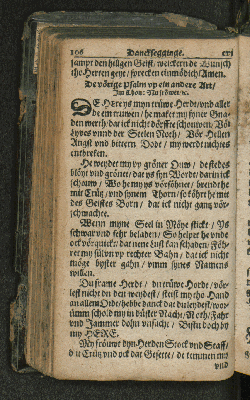 106 Dancksegginge. cvj
sampt den hilligen Geist, weickern de Wunsch
tho Herten geye / sprecken einmödich / Amen.
De vörige Psalm vp ein andere Art /
Im Thon: Nu frówet ec.
DE Here ys myn trüwe Herde / vnd aller
de em truwen / he maket my syner Gna-
den werth / dat ick nicht dörffte schouwen / Vör
kyves vnnd der Seelen Noth / Vör Hellen
Angst vnd bittern Dode / my werd nichtes
entbreken.
He weydet my vp gröner Ouw / de stedes
blöyt vnd grönet / dat ys syn Worde / darin ick
schauw / Wo he my ys vorsöhnet / wende he
mit Crütz / vnd synem Thorn / so föhrt he mit
des Geistes Born / dat ick nicht gantz vor-
schmachte.
Wenn myne Seel in Nöhe sticke / Ys
schwar vnd sehr beladen / So helpet he vnde
ock vörquickt / dat nene Lust kan schaden / Föh-
ret my stil on vp rechter Bahn / dat ick nicht
möge byster gahn / vmm synes Namens
willen.
Du frame Herde / du trüwe Horde / vör-
lest nicht dn den weydest / steist my tho Hand
an allem Orde / hebbe danck dat du leydest / wor-
ümm scholdt my in düster Nacht / Noth / Fahr
vnd Jammer dohn vasucht / Bistu doch by
my HERE.
My frouwt dyn Herden Stock vnd Staff /
dit Crütz vnd ock dat Gesette / de temmen my
vnd